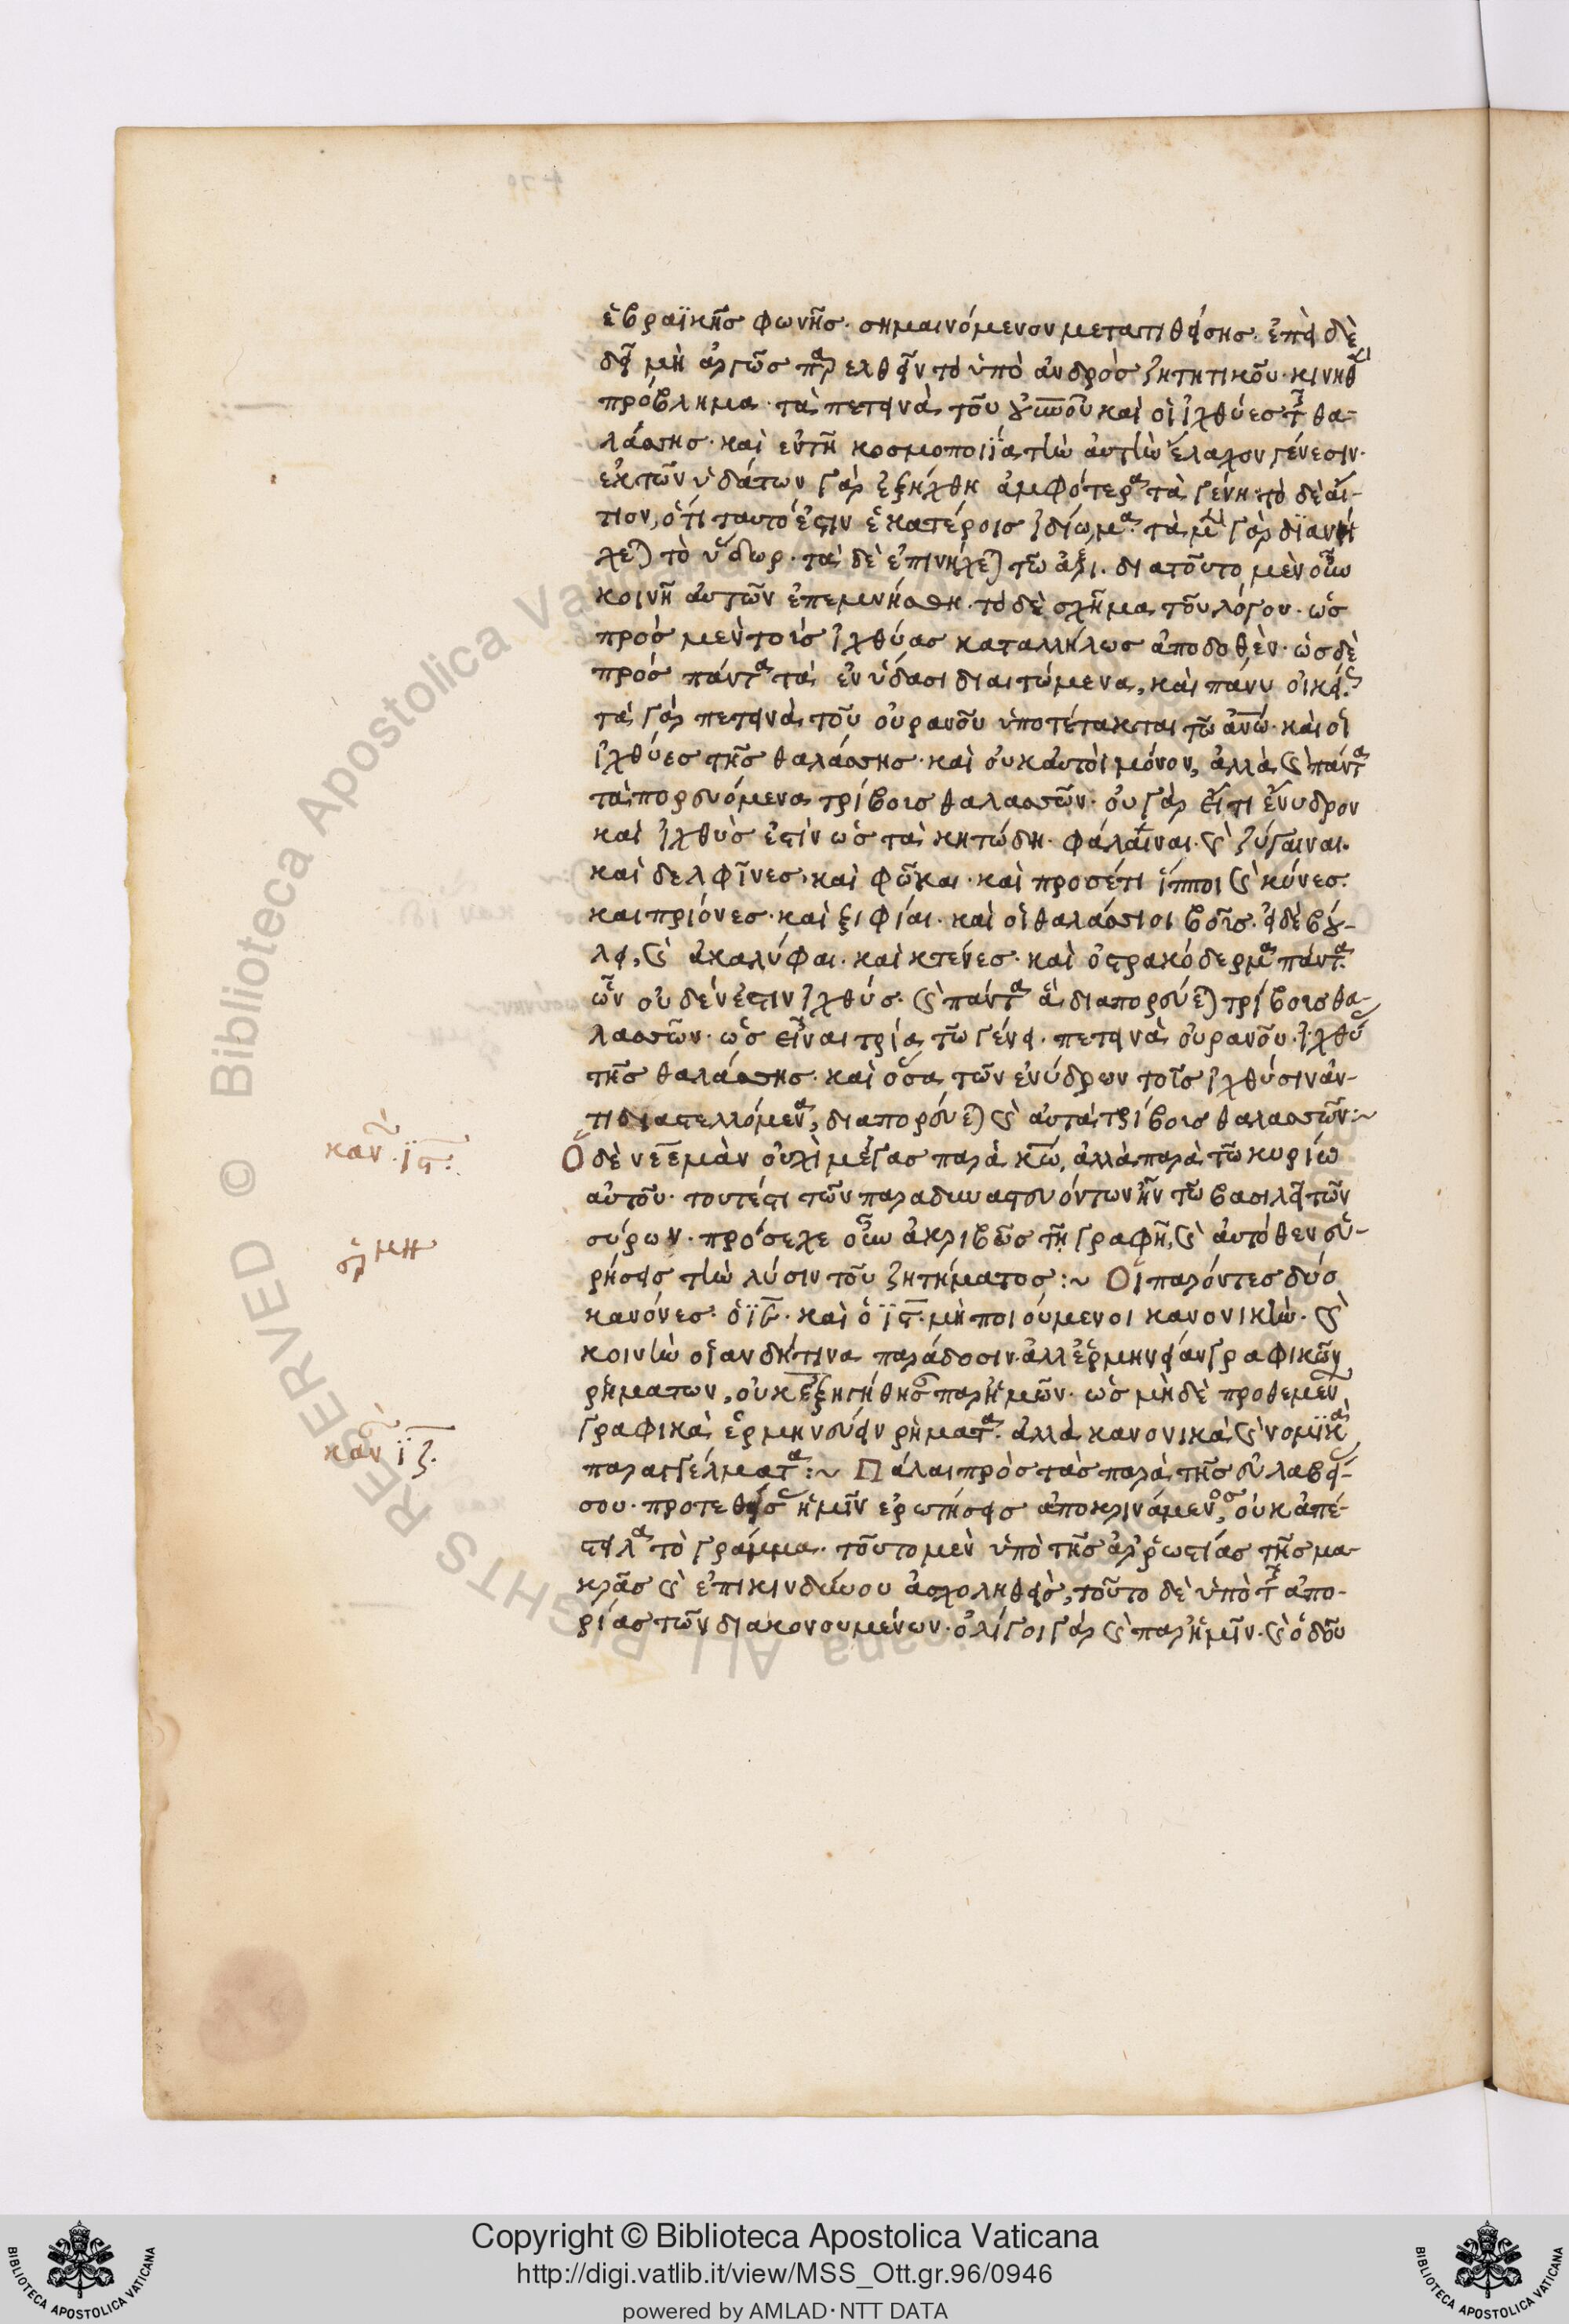 ἑβραϊκῆς φωνῆς· σημαινόμενον μετατιθείσης. ἐπεὶ δὲ
δεῖ μὴ ἀργῶς παρελθεῖν τὸ ὑπὸ ἀνδρὸς ζητητικοῦ· κινηθὲν
πρόβλημα· τὰ πετεινὰ τοῦ οὐνοῦ καὶ οἱ ἰχθύες τῆς θα-
λάσσης· καὶ ἐν τῇ κοσμοποιΐα τὴν αὐτὴν ἔλαχον γένεσιν·
ἐκ τῶν ὑδάτων γὰρ ἐξήχθη ἀμφότερα τὰ γένη· τὸ δὲ αἴ-
τιον, ὅτι ταυτό ἐστιν ἑκατέροις ἰδίωμα· τὰ μὲν γὰρ διανή
χεται τὸ ὕδωρ· τὰ δὲ ἐπινήχεται τῶ ἀέρι. διατοῦτο μὲν οὖν
κοινῆ αὐτῶν ἐπεμνήσθη· τὸ δὲ σχῆμα τοῦ λόγου· ὡς
πρὸς μὲν τοὺς ἰχθύας καταλλήλως ἀποδοθὲν· ὡς δὲ
πρὸς πάντα τὰ ἐν ὕδασι διαιτώμενα, καὶ πάνυ
τὰ γὰρ πετεινὰ τοῦ οὐρανοῦ ὑποτέτακται τῶ ἀνω· καὶ οἱ
ἰχθύες τῆς θαλάσσης· καὶ οὐκ αὐτοὶ μόνον, ἀλλὰ καὶ πάντα
τὰ πορευόμενα τρίβοις θαλασσῶν· οὐ γὰρ εἴ τι ἔνυδρον
καὶ ἰχθὺς ἐστὶν ὡς τὰ κητώδη· φάλαιναι· καὶ ζύγαιναι·
καὶ δελφῖνες· καὶ φῶκαι· καὶ προσέτι ἵπποι καὶ κύνες·
και πρίονες· καὶ ξιφίαι· καὶ οἱ θαλάσσιοι βόες·
καὶ ἀκαλύφαι· καὶ κτένες· καὶ ὀστρακόδερμα πάντα·
ὧν οὐδέν ἐστιν ἰχθύς· καὶ πάντα ἃ διαπορεύεται τρίβοις θα-
λασσῶν· ὡς εἶναι τρία τῶ γένει· πετεινὰ οὐρανοῦ· ἰχθύας
τῆς θαλάσσης· καὶ ὅσα τῶν ἐνύδρων τοῖς ἰχθύσιν ἀν-
τιδιαστελλόμενα, διαπορεύεται καὶ αὐτὰ τρίβοις θαλασσῶν:~
Ὁ δὲ νεεμὰν οὐχὶ μέγας παρὰ κω, ἀλλὰ παρὰ τῶ κυρίω
αὐτοῦ· τουτέστι τῶν παραδυναστευόντων ἦν τῶ βασιλεῖ τῶν
σύρων· πρόσεχε οὖν ἀκριβῶς τῇ γραφῆ, καὶ αὐτόθεν εὑ-
ρήσεις τὴν λύσιν τοῦ ζητήματος:~ Οἱ παρόντες δύο
κανόνες· ὁ ιε· καὶ ὁ ις· μὴ ποιούμενοι κανονικὴν· καὶ
κοινὴν οἱανδήτινα παράδοσιν· ἀλλ ἑρμηνείαν γραφικῶν
ῥημάτων, οὐκ ἐξηγήθησαν παρ ἡμῶν· ὡς μὴ δὲ προθεμένων
γραφικὰ ἑρμηνεύειν ῥήματα· ἀλλὰ κανονικὰ καὶ νομικὰ
παραγγέλματα:~ Πάλαι πρὸς τὰς παρὰ τῆς εὐλαβεί-
σου· προτεθείσας ἡμῖν ἐρωτήσεις ἀποκρινάμενος, οὐκ ἀπέ-
στειλα τὸ γράμμα· τοῦτο μὲν ὑπὸ τῆς ἀρρωστίας τῆς μα-
κρᾶς καὶ ἐπικινδύνου ἀσχοληθεὶς, τοῦτο δὲ ὑπὸ τῆς ἀπο-
ρίας τῶν διακονουμένων· ὀλίγοι γὰρ καὶ παρ ἡμῖν· καὶ ὁδοῦ
καν. ις.
ἑρμη
καν ιζ.
Copyright © Biblioteca Apostolica Vaticana
http://digi.vatlib.it/view/MSS_Ott.gr.96/0946
powered by AMLAD·NTT DATA
BIBLIOTECA APOSTOLICA VATICANA
BIBLIOTECA APOSTOLICA VATICANA
ALL RIGHTS RESERVED © Biblioteca Apostolica Vaticana